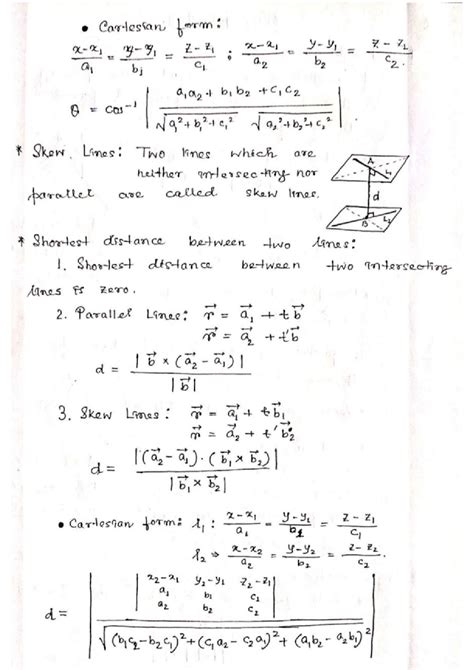 • Cartesian form:
x-x₁/a₁ = y-y₁/b₁ = z-z₁/c₁ ; x-x₁/a₂ = y-y₁/b₂ = z-z₂/c₂.
θ = cos⁻¹ | a₁a₂ + b₁b₂ + c₁c₂ / √a₁²+b₁²+c₁² √a₂²+b₂²+c₂² |
* Skew Lines: Two lines which are
neither intersecting nor
parallel are called skew lines.
A L₁
d
B L₂
* Shortest distance between two lines:
1. Shortest distance between two intersecting
lines is zero.
2. Parallel Lines: r⃗ = a⃗₁ + t b⃗
r⃗ = a⃗₂ + t'b⃗
d = | b⃗ × (a⃗₂ - a⃗₁) | / | b⃗ |
3. Skew Lines: r⃗ = a⃗₁ + t b⃗₁
r⃗ = a⃗₂ + t' b⃗₂
d = | (a⃗₂ - a⃗₁) · (b⃗₁ × b⃗₂) | / | b⃗₁ × b⃗₂ |
• Cartesian form: l₁ : x-x₁/a₁ = y-y₁/b₁ = z-z₁/c₁
l₂ ⇒ x-x₂/a₂ = y-y₂/b₂ = z-z₂/c₂.
| x₂-x₁ y₂-y₁ z₂-z₁ |
| a₁ b₁ c₁ |
| a₂ b₂ c₂ |
d =
√(b₁c₂-b₂c₁)²+(c₁a₂-c₂a₁)²+(a₁b₂-a₂b₁)²